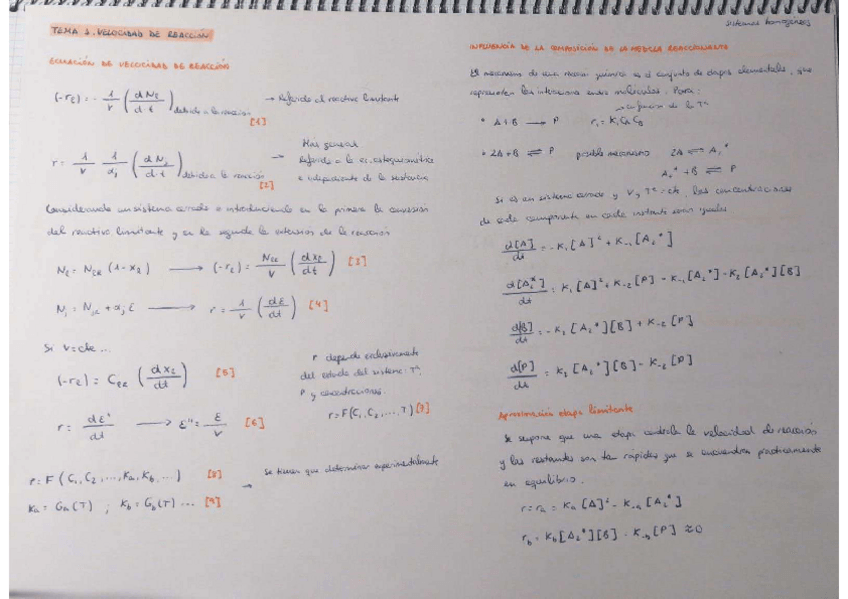 Sistemas homogéneos
TEMA 1. VELOCIDAD DE REACCIÓN
ECUACIÓN DE VELOCIDAD DE REACCIÓN
(-rₗ) = - 1/V (dNₗ/dt) debido a la reacción → Referido al reactivo limitante
[1]
r = 1/V 1/αⱼ (dNⱼ/dt) debido a la reacción → Más general
Referido a la ec. estequiométrica
e independiente de la sustancia
[2]
Considerando un sistema cerrado e introduciendo en la primera la conversión
del reactivo limitante y en la segunda la extensión de la reacción
(1-xₗ) → (-rₗ) = (dxₗ/dt) [3]
→ r = 1/V (dε/dt) [4]
Si V=cte...
(-rₗ) = (dxₗ/dt) [5]
r depende exclusivamente
del estado del sistema: Tª,
P y concentraciones.
r = F(C₁, C₂, ..., T) [7]
r = dε'/dt → = ε/V [6]
r = F (C₁, C₂, ..., Ka, Kb, ...) [8]
→ se tienen que determinar experimentalmente
Ka = Ga(T) ; Kb = Gb(T) ... [9]
INFLUENCIA DE LA COMPOSICIÓN DE LA MEZCLA REACCIONANTE
El mecanismo de una reacción química es el conjunto de etapas elementales, que
representen las interacciones entre moléculas. Para:
→ es función de la Tª
• A+B → P
• 2A+B ⇌ P posible mecanismo 2A ⇌ A₂*
A₂* + B ⇌ P
Si es un sistema cerrado y V, Tª = cte, las concentraciones
de cada componente en cada instante serán iguales
d[A]/dt = -K₁[A]² + K₋₁[A₂*]
d[A₂*]/dt = K₁[A]² + K₋₂[P] - K₋₁[A₂*] - K₂[A₂*][B]
d[B]/dt = -K₂[A₂*][B] + K₋₂[P]
d[P]/dt = K₂[A₂*][B] - K₋₂[P]
Aproximación etapa limitante
Se supone que una etapa controla la velocidad de reacción
y las restantes son tan rápidas que se encuentran prácticamente
en equilibrio.
r = rₐ = Kₐ[A]² - K₋ₐ[A₂*]
= [A₂*][B] - [P] ≈ 0